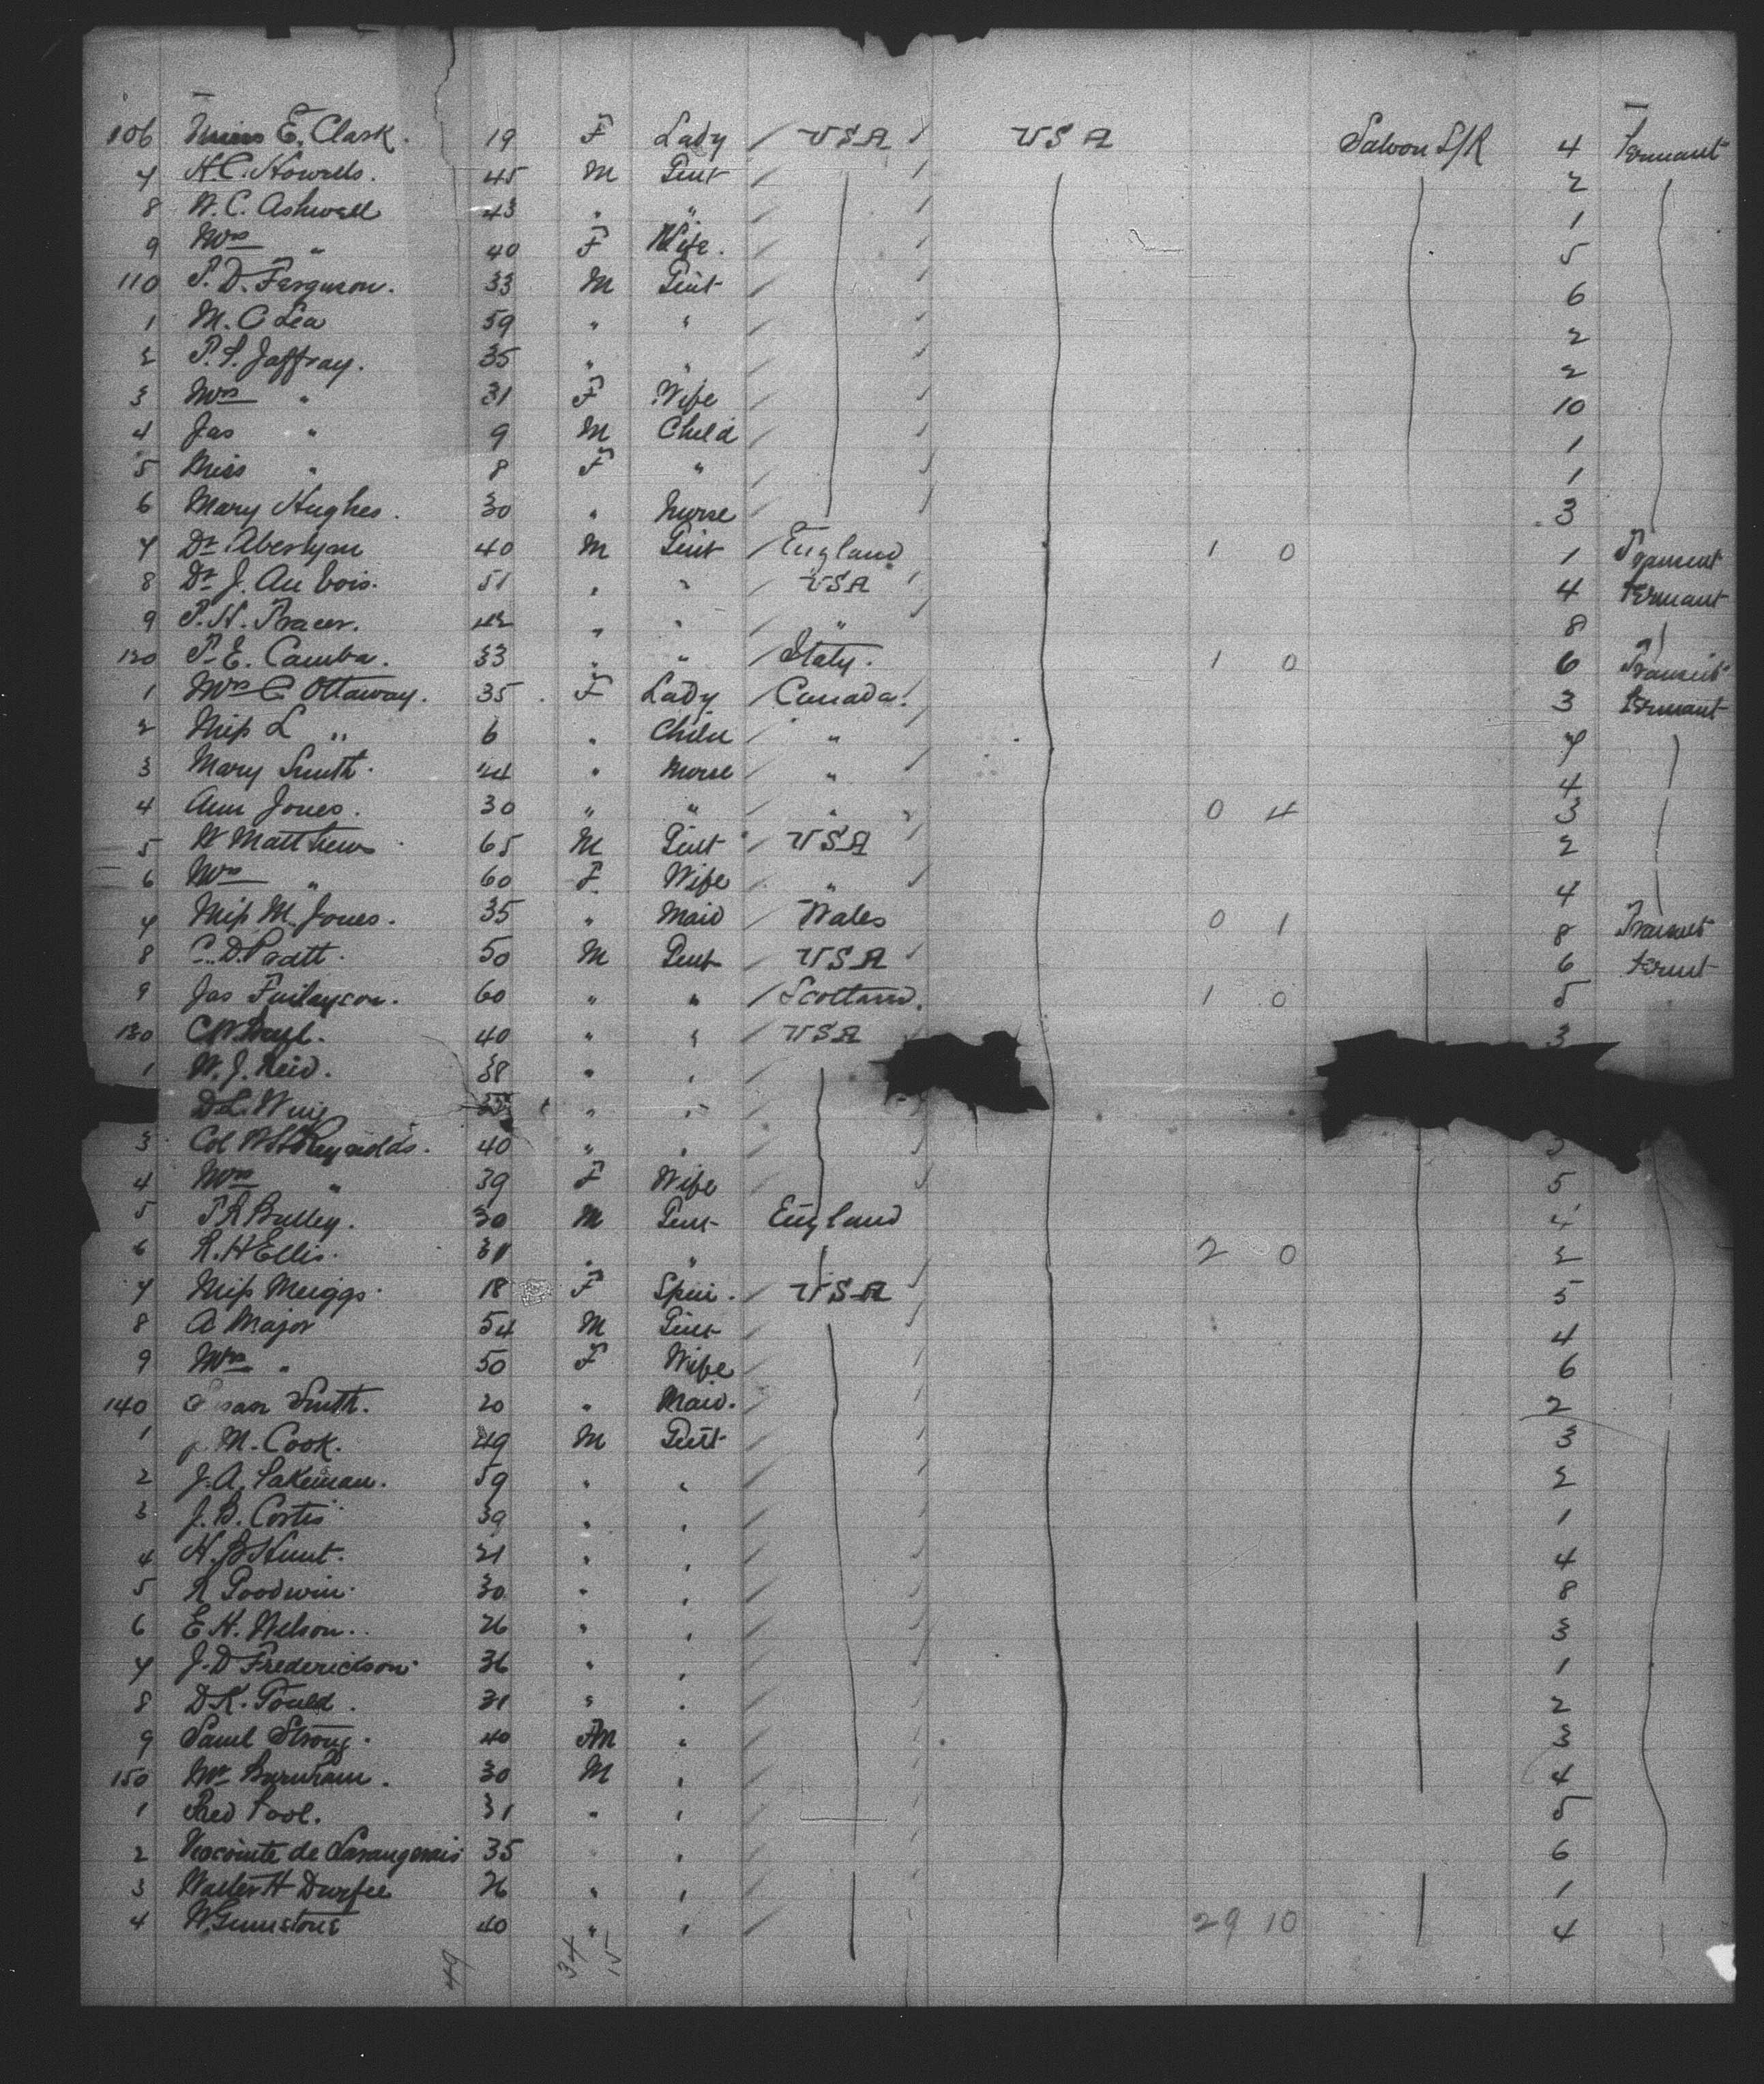 106 E. Clark. 19 F Lady / USA / USA Saloon S/R 4 Permant
7 H.C. Howells. 45 M Gent / / 2
8 W.C. Ashwell 43 " " / / 1
9 Mrs " 40 F Wife. / / 5
110 P.D. Ferguson. 33 M Gent / / 6
1 M.C Lea 59 " " / / 2
2 P.S. Jaffray. 35 " " / / 2
3 Mrs " 31 F Wife / / 10
4 Jas " 9 M Child / / 1
5 Miss " 8 F " / / 1
6 Mary Hughes. 30 " Nurse / / 3
7 Dr 40 M Gent / England 1 0 1 Transient
8 Dr J. 51 " " / USA / 4 Permant
9 P.H. 42 " " / " / 8 "
120 P.E. Camba. 33 " " / Italy. 1 0 6 Transit
1 Mrs C Ottaway. 35 F Lady / Canada. / 3 Permant
2 Miss L " 6 " Child / " / 7
3 Mary Smith. 44 " Nurse / " / 4
4 Ann Jones. 30 " " / " / 0 4 3
5 W Matthews 65 M Gent / USA / 2
6 Mrs " 60 F Wife / " / 4
7 Miss M. Jones. 35 " Maid / Wales 0 1 8 Transit
8 C.D. Pratt. 50 M Gent / USA / 6 Permt
9 Jas Finlayson. 60 " " / Scotland. 1 0 5
130 40 " " / USA 3
1 W.J. Reid. 38 " " /
D.L. " "
3 Col Reynolds. 40 " " /
4 Mrs " 39 F Wife / 5
5 Bulley. 30 M Gent England 4
6 R.H Ellis. 31 " " 2 0 2
7 Miss Meiggs. 18 F Spin. / USA / 5
8 A Major 54 M Gent / / 4
9 Mrs " 50 F Wife / / 6
140 Smith. 20 " Maid. / / 2
1 M. Cook. 49 M Gent / / 3
2 J.A. Lakeman. 59 " " / / 2
3 J.B. Cortis 39 " " / / 1
4 H.B Hunt. 21 " " / / 4
5 R Goodwin. 30 " " / / 8
6 E.H. Nelson. 26 " " / / 3
7 J.D Frederickson. 36 " " / / 1
8 D.K. Gould. 31 " " / / 2
9 Saml Strong. 40 M " / / 3
150 Mr Barnham. 30 M " / / 4
1 Fred Pool. 31 " " / / 5
2 Viscointe de 35 " / / 6
3 Walter H Durfee 26 " " / / 1
4 W. 40 " " / 29 10 4
49 34 15